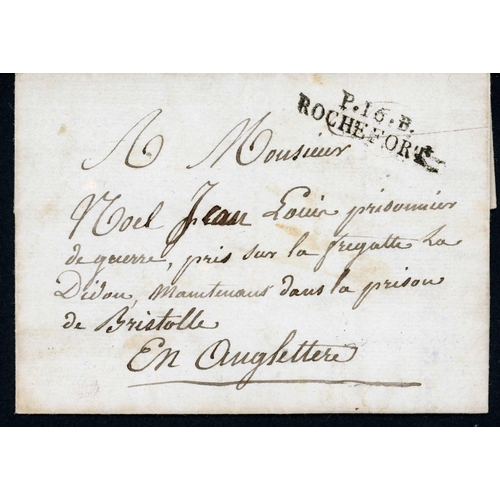 P.16.B.
ROCHEFORT
A Monsieur
Noel Jean Louis prisonnier
de guerre, pris sur la fregatte La
Didon, maintenant dans la prison
de Bristolle
En Anglettere